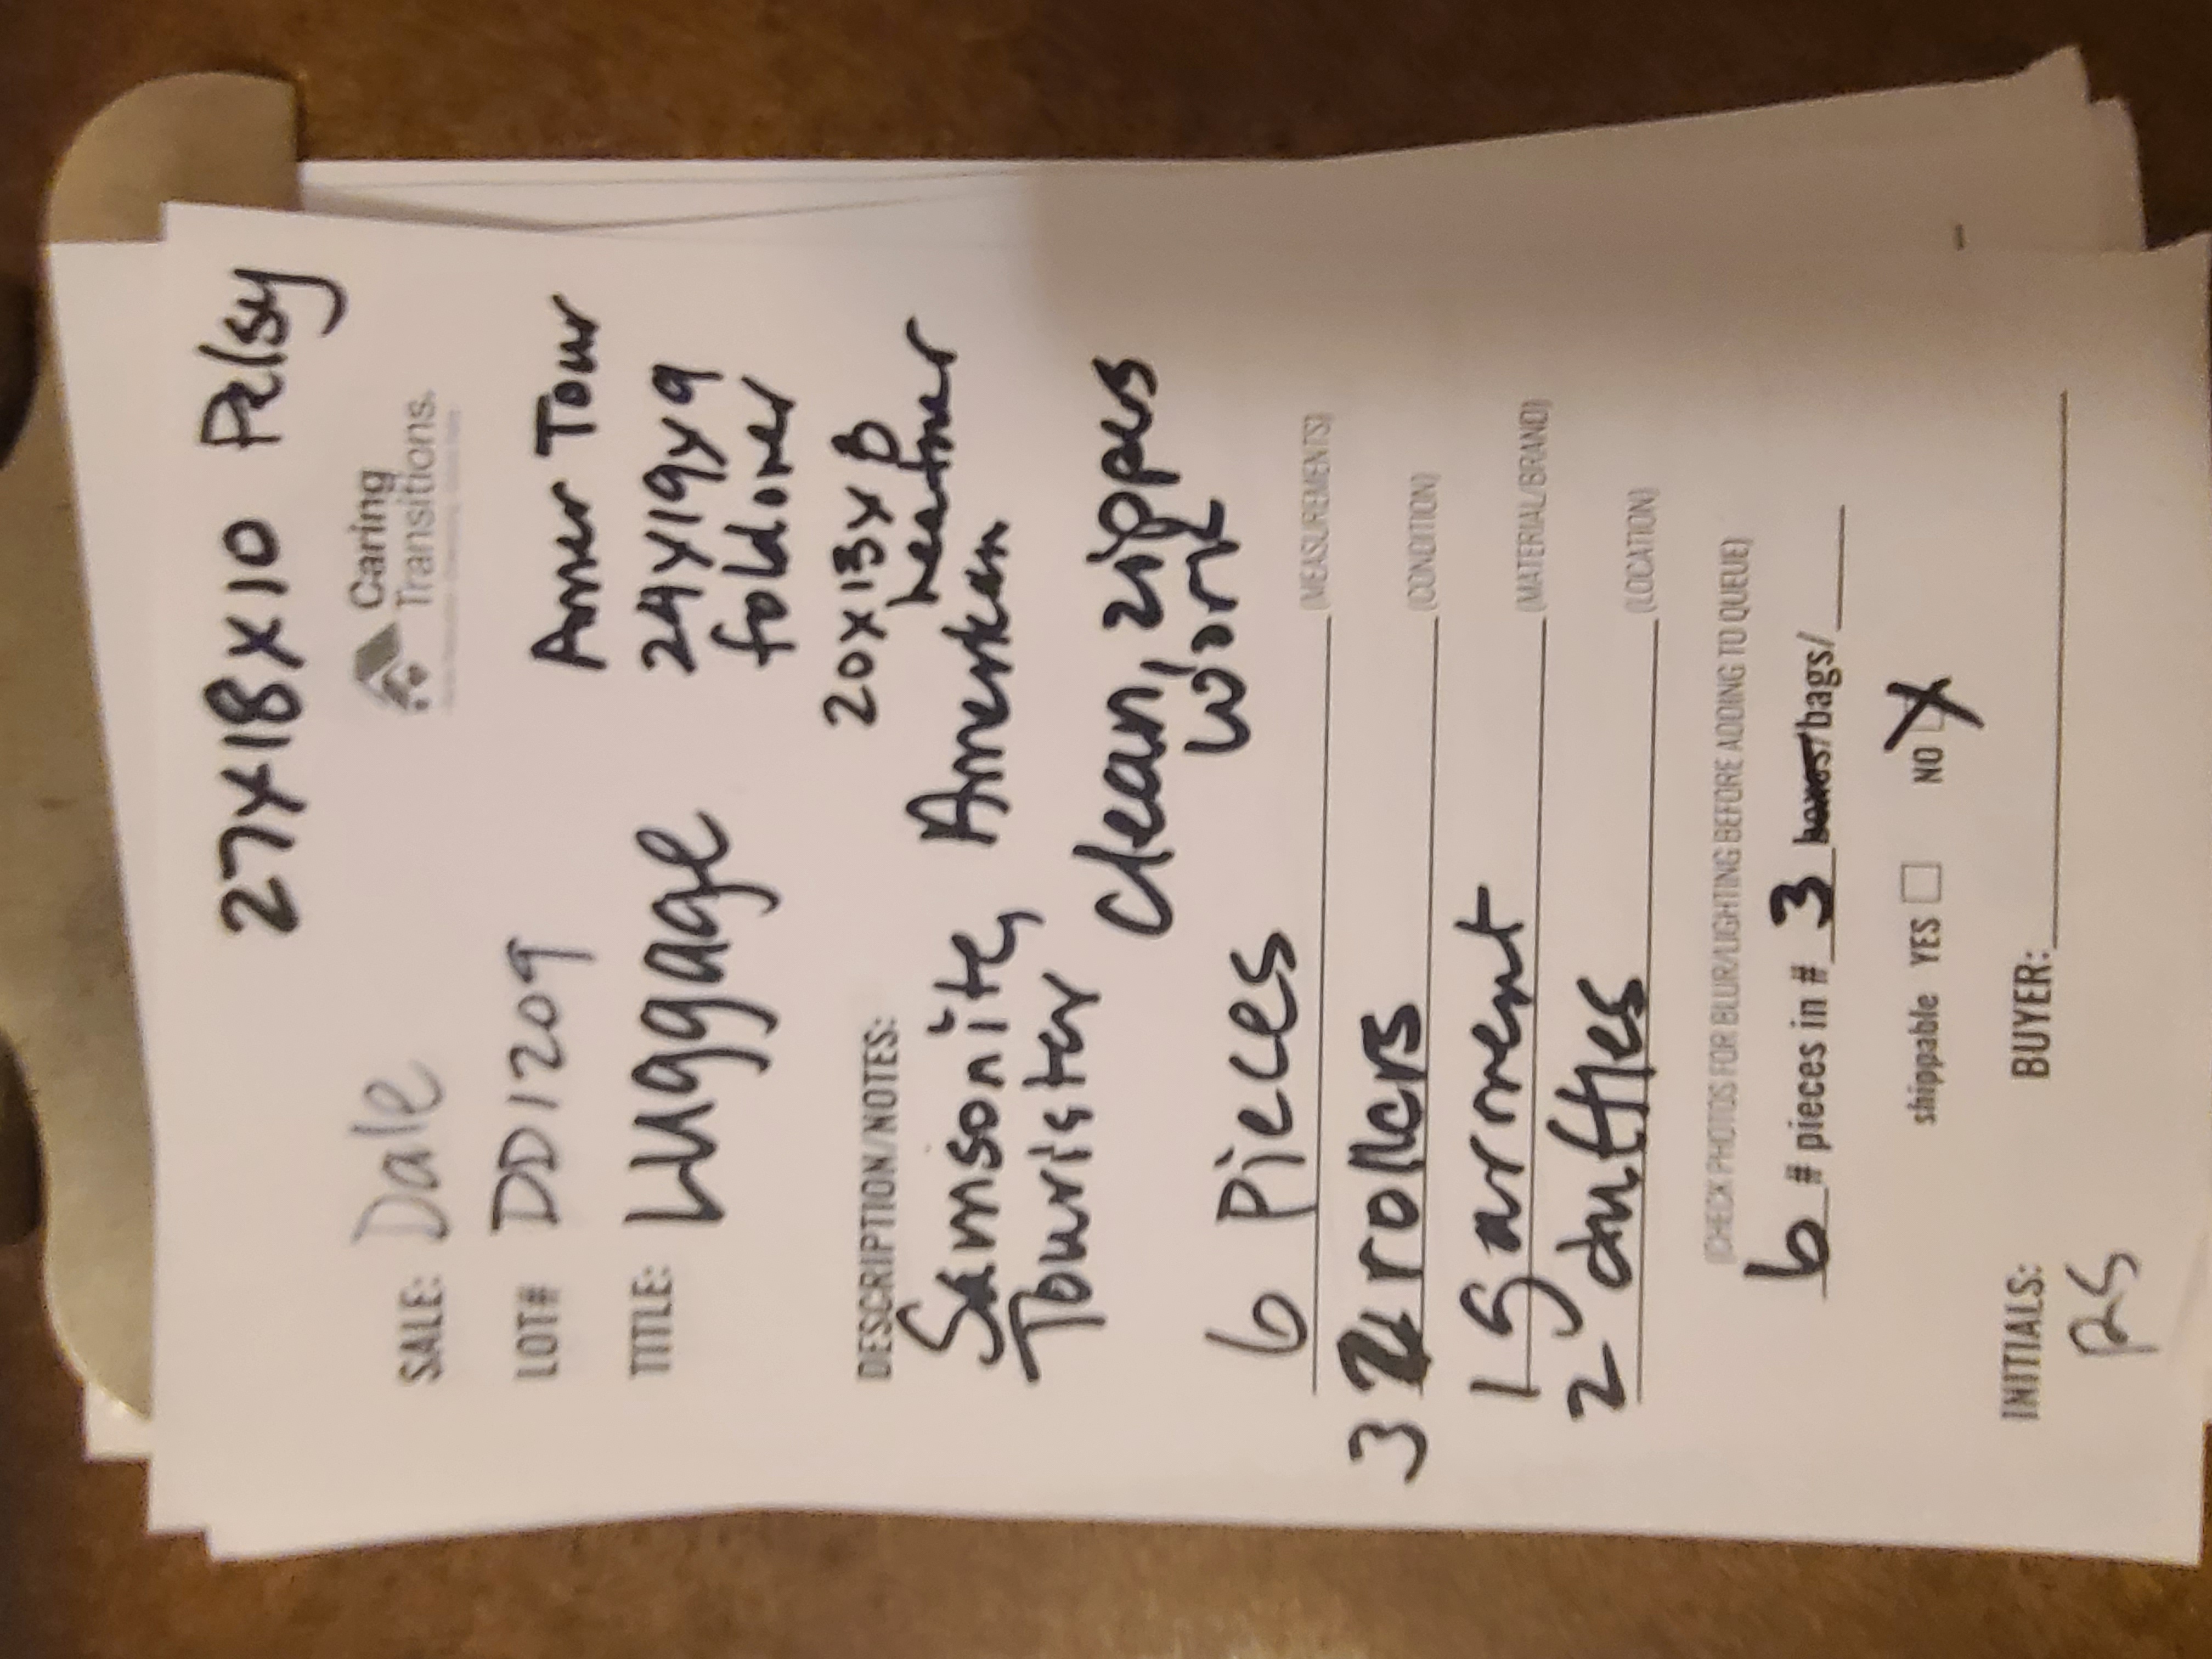 27x18x10 Pelsy
Caring
Transitions.
SALE: Dale
LOT# DD1209
Amer Tour
TITLE: Luggage
24x19x9
foldover
20x13x8
DESCRIPTION/NOTES:
Samsonite, American
Tourister
Clean, zippers
work
6 Pieces (MEASUREMENTS)
3 rollers (CONDITION)
1 Garment (MATERIAL/BRAND)
2 duffles (LOCATION)
(CHECK PHOTOS FOR BLUR/LIGHTING BEFORE ADDING TO QUEUE)
6 # pieces in # 3 boxes/bags/
shippable YES NO X
INITIALS: BUYER:
RS